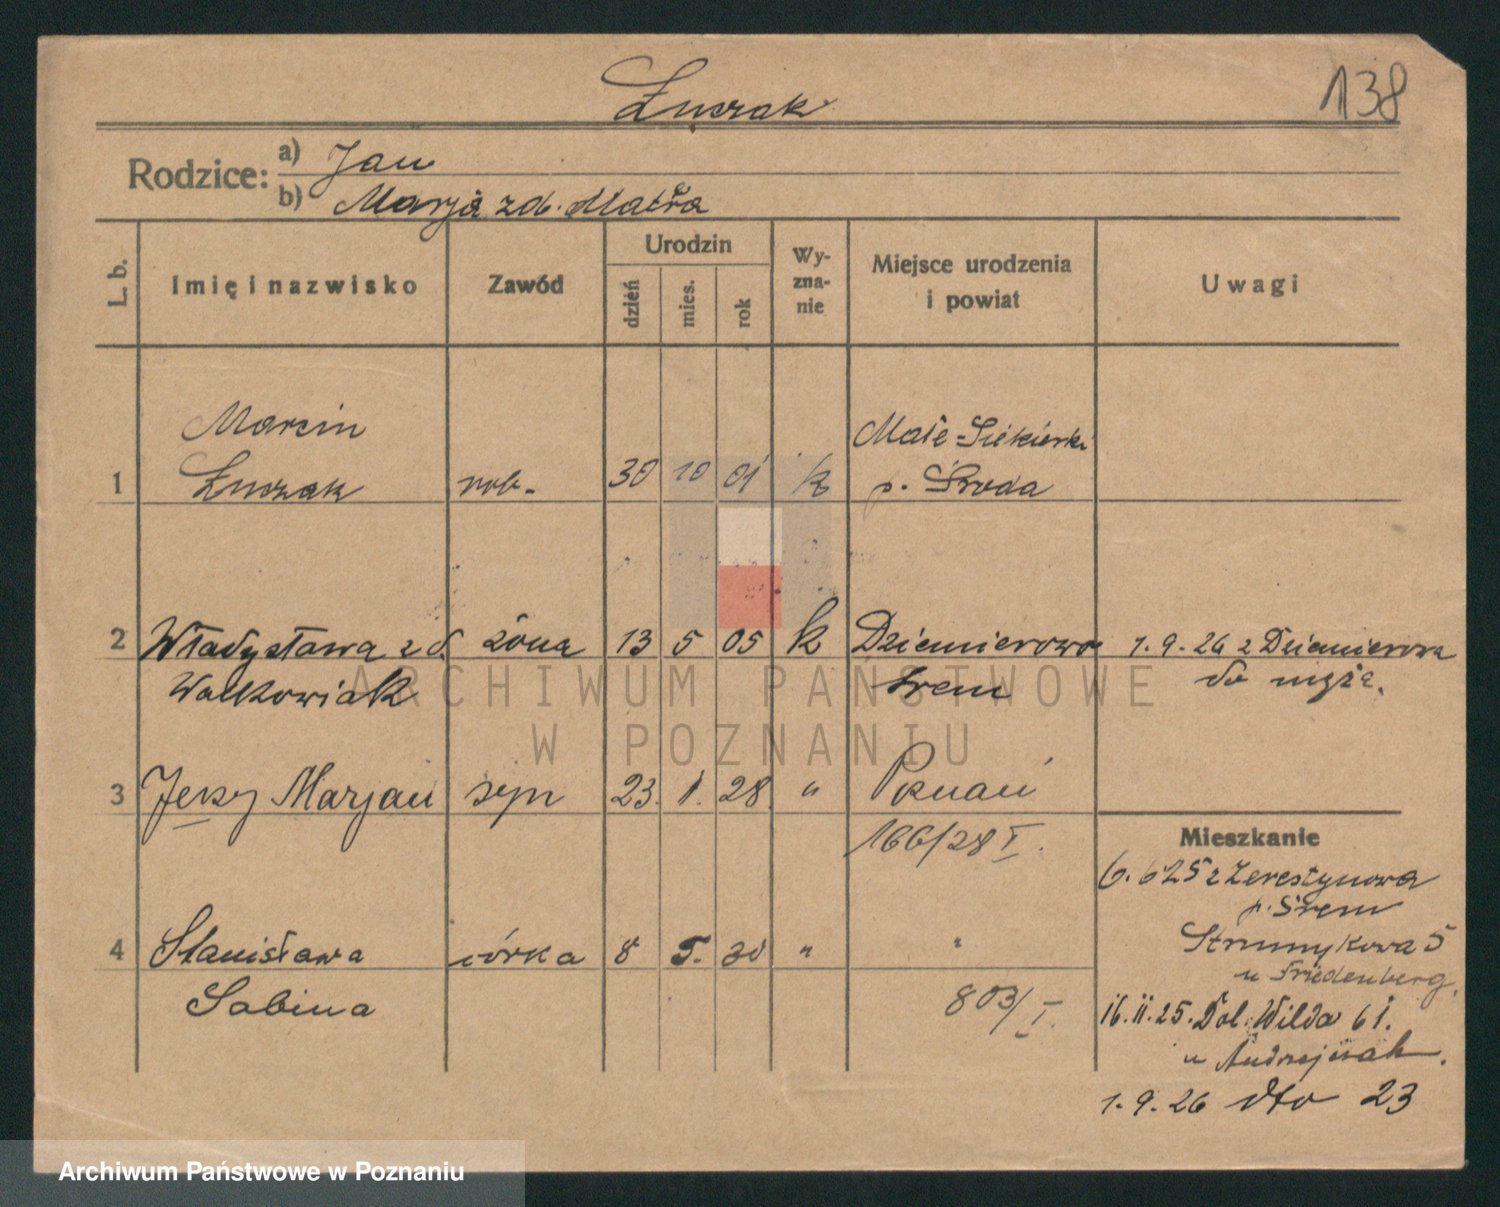 138
Łuczak
Rodzice: a) Jan
b) Marja zd. Matła
L. b. Imię i nazwisko Zawód Urodzin dzień mies. rok Wy-zna-nie Miejsce urodzenia i powiat Uwagi
Marcin Małe-Siekierki
1 Łuczak rob. 30 10 01 k p. Środa
2 Władysława zd. żona 13 5 05 k Dziemierowo 1.9.26 z Dziemierowa
Walkowiak Śrem do męża.
3 Jerzy Marjan syn 23. 1. 28 " Poznań
166/28 I.
Mieszkanie
6.6 25 z
p. Śrem
4 Stanisława córka 8 5. 30 " " Strumykowa 5
u Friedenberg.
Sabina 803/I. 16.11.25. Dol. Wilda 61.
u Andrzejczak.
1.9.26 dto 23
ARCHIWUM PAŃSTWOWE
W POZNANIU
Archiwum Państwowe w Poznaniu